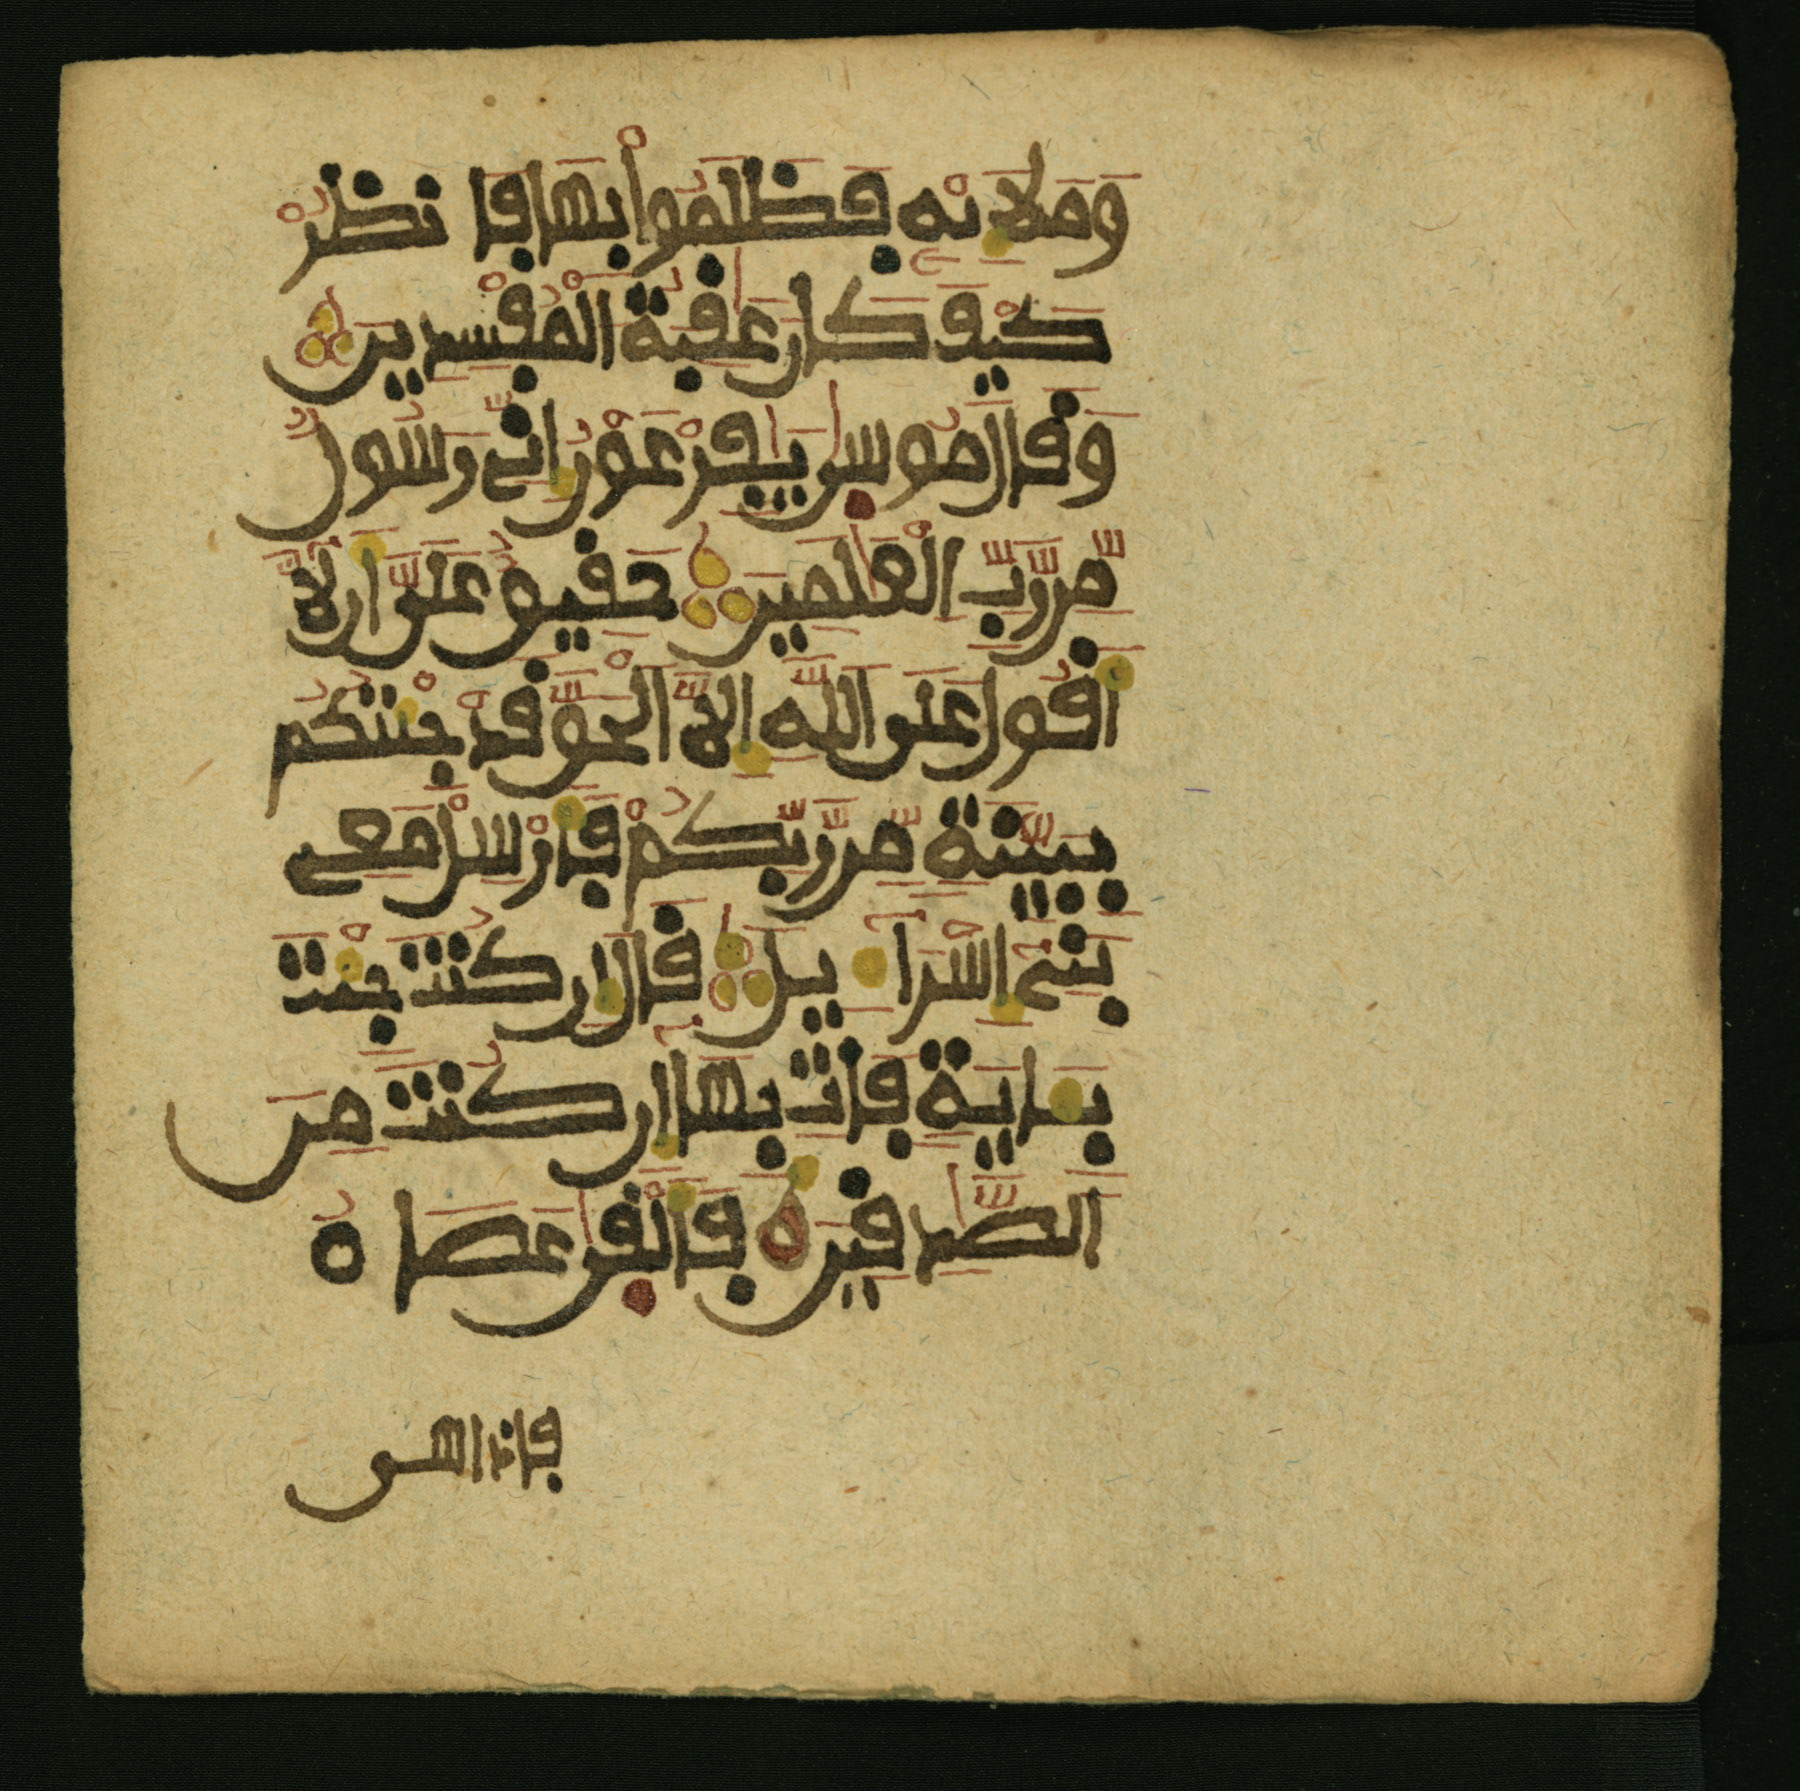 وَمَلَإِيْهِ فَظَلَمُواْ بِهَا فَانظُرْ
كَيْفَ كَانَ عَٰقِبَةُ الْمُفْسِدِينَ
وَقَالَ مُوسَىٰ يَٰفِرْعَوْنُ إِنِّي رَسُولٌ
مِّن رَّبِّ الْعَٰلَمِينَ حَقِيقٌ عَلَيَّ أَن لَّا
أَقُولَ عَلَى اللَّهِ إِلَّا الْحَقَّ قَدْ جِئْتُكُم
بِبَيِّنَةٍ مِّن رَّبِّكُمْ فَأَرْسِلْ مَعِي
بَنِي إِسْرَاءِيلَ قَالَ إِن كُنتَ جِئْتَ
بِـَٔايَةٍ فَاتِ بِهَا إِن كُنتَ مِنَ
الصَّٰدِقِينَ فَأَلْقَىٰ عَصَاهُ
فإذا هي